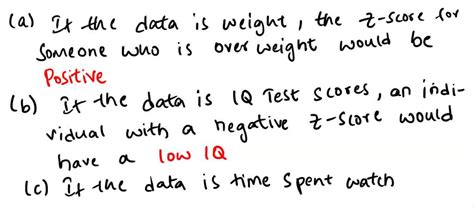 (a) If the data is weight, the z-score for
someone who is over weight would be
Positive
(b) If the data is IQ Test scores, an indi-
vidual with a negative z-score would
have a low IQ
(c) If the data is time spent watch